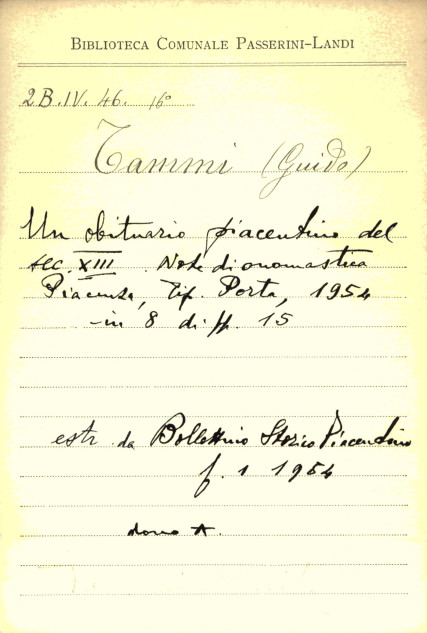 BIBLIOTECA COMUNALE PASSERINI-LANDI
2B.IV. 46. 16°
Tammi (Guido)
Un obituario piacentino del
sec. XIII. Note di onomastica
Piacenza, Tip. Porta, 1954
in 8 di pp. 15
estr. da Bollettino Storico Piacentino
f. 1 1954
dono A.